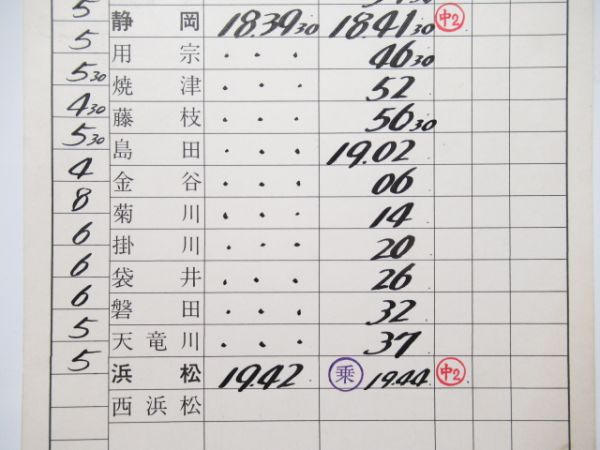 5
静岡 18.39 30 18.41 30 中2
5
用宗 . . . 46 30
5 30
焼津 . . . 52
4 30
藤枝 . . . 56 30
5 30
島田 . . . 19.02
4
金谷 . . . 06
8
菊川 . . . 14
6
掛川 . . . 20
6
袋井 . . . 26
6
磐田 . . . 32
5
天竜川 . . . 37
5
浜松 19.42 乗 19.44 中2
西浜松